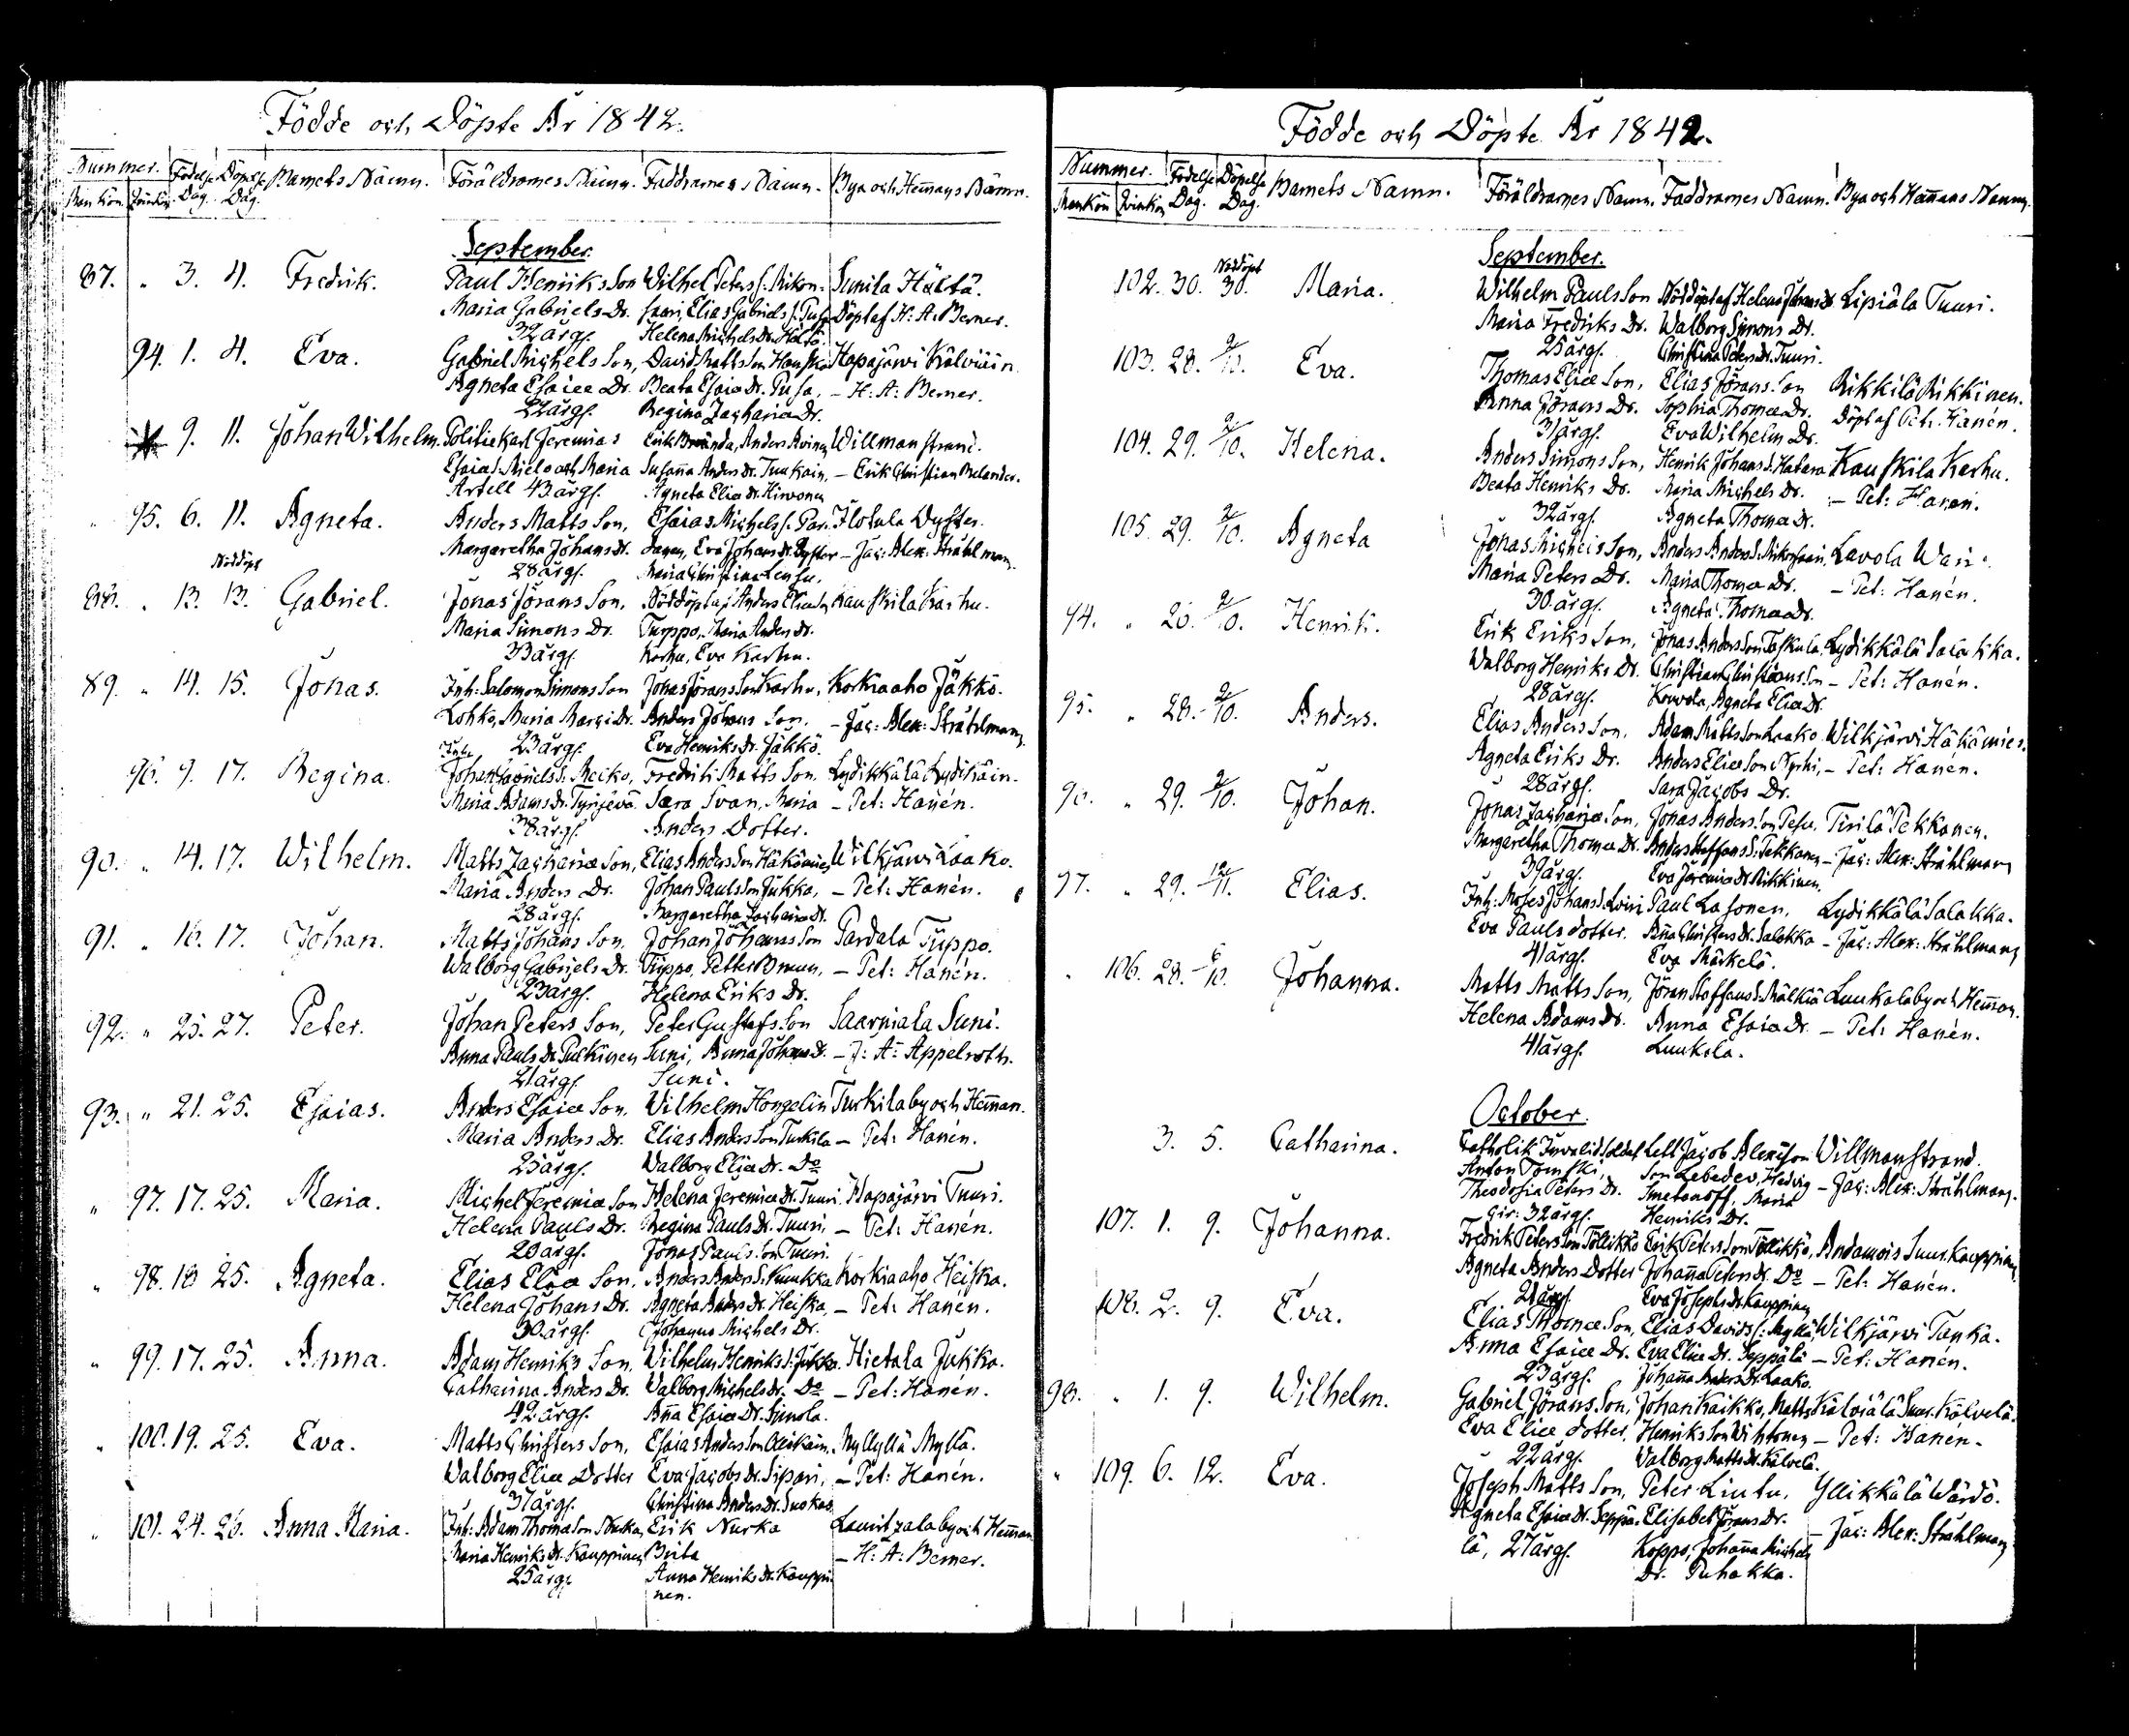 Födde och Döpte År 1842.
Nummer. Födelse Dag. Döpelse Dag. Barnets Namn. Föräldrarnes Namn. Faddrarnes Namn. Bya och Hemans Namn.
Mankön. Qvinkön.
September.
87. " 3. 4. Fredrik. Paul Henriks Son Wilhel Peters S. Mikon- Sunila Hältä.
Maria Gabriels Dr. saari, Elias Gabriels S. Pusa Döpt af H. A. Berner.
32 årg. Helena Michels Dr. Hältä.
94. 1. 4. Eva. Gabriel Michels Son, David Matts Son Hapajärvi Kälviäin
Agneta Esaiæ Dr. Beata Esaiæ Dr. Pusa, – H. A. Berner.
22 årg. Regina Zachariæ Dr.
9. 11. Johan Wilhelm. Politiekarl Jeremias Erik Brunda, Anders Willmanstrand.
Esaiæ S. Mielo och Maria Susana Anders Dr. Tuukain, – Erik Christian Melander.
Artell 43 årg. Agneta Eliæ Dr. Hirvonen
" 95. 6. 11. Agneta. Anders Matts Son, Esaias Michels S. Par- Ilotula Dyster.
Margaretha Johans Dr. Eva Johans Dr. Dyster – Jac: Alex: Strählman.
28 årg. Maria Christina Lensu.
Nöddöpt
88. " 13. 13. Gabriel. Jonas Jörans Son, Nöddöpt af Anders Eliæ Son Kauskila Karhu.
Maria Simons Dr. Turppo, Maria Anders Dr.
33 årg. Karhu, Eva Karhu.
89. " 14. 15. Jonas. Inh: Salomon Simons Son Jonas Jörans Son Karhu, Korkiaaho Jäkkö.
Lohko, Maria Marci Dr. Anders Johans Son, – Jac: Alex: Strählman.
23 årg. Eva Henriks Dr. Jäkkö.
Inh:
96. 9. 17. Regina. Johan Gabriels S. Recko, Fredrik Matts Son. Lydikkälä Lydikäin.
Maria Adams Dr. Tyrijeva. Sara Svan, Maria – Pet: Hanén.
38 årg. Anders Dotter.
90. " 14. 17. Wilhelm. Matts Zachariæ Son, Elias Anders Son Häkämies Wilkjärvi Laako.
Maria Anders Dr. Johan Pauls Son Jukka, – Pet: Hanén.
28 årg. Margaretha Zachariæ Dr.
91. " 16. 17. Johan. Matts Johans Son, Johan Johans Son Pardala Tuppo.
Walborg Gabriels Dr. Tuppo, Petter Bruun, – Pet: Hanén.
23 årg. Helena Eriks Dr.
92. " 25. 27. Peter. Johan Peters Son, Peter Gustafs Son Saarniala Suni.
Anna Pauls Dr. Pulkinen Suni, Anna Johans D. – J: A: Appelroth.
21 årg. Suni.
93. " 21. 25. Esaias. Anders Esaiæ Son, Wilhelm Hongelin Turkila by och Heman.
Maria Anders Dr. Elias Anders Son Turkila – Pet: Hanén.
25 årg. Walborg Eliæ Dr. Do
" 97. 17. 25. Maria. Michel Jeremiæ Son Helena Jeremiæ Dr. Tuuri. Hapajärvi Tuuri.
Helena Pauls Dr. Regina Pauls Dr. Tuuri, – Pet: Hanén.
20 årg. Jonas Pauls Son Tuuri.
" 98. 18 25. Agneta. Elias Eliæ Son, Anders Anders S. Kuukka Korkiaaho Heiska.
Helena Johans Dr. Agneta Anders Dr. Heiska, – Pet: Hanén.
30 årg. Johanna Michels Dr.
" 99. 17. 25. Anna. Adam Henriks Son, Wilhelm Henriks S. Jukka. Hietala Jukka.
Catharina Anders Dr. Walborg Michels Dr. Do – Pet: Hanén.
42 årg. Aña Esaiæ Dr. Simola.
" 100. 19. 25. Eva. Matts Christers Son, Esaias Anders Son Ollikain. Myllylä Myllä.
Walborg Eliæ Dotter Eva Jacobs Dr. Sipari, – Pet: Hanén.
37 årg. Christina Anders Dr. Suokas
" 101. 24. 26. Anna Maria. Inh: Adam Thomæ Son Nurka, Erik Nurka Lauritzala by och Heman
Maria Henriks Dr. Kauppinen Brita – H: A: Berner.
25 årg. Anna Henriks Dr. Kauppi-
nen.
Födde och Döpte År 1842.
Nummer. Födelse Dag. Döpelse Dag. Barnets Namn. Föräldrarnes Namn. Faddrarnes Namn. Bya och Hemans Namn.
Mankön Qvinkön
September.
Nöddöpt
102. 30. 30. Maria. Wilhelm Pauls Son Nöddöpt af Helena Johans Dr Lipiälä Tuuri.
Maria Fredriks Dr. Walborg Simons Dr.
25 årg. Christina Peters Dr. Tuuri.
103. 28. 2/10. Eva. Thomas Eliæ Son, Elias Jörans Son Rikkilä Rikkinen.
Anna Jörans Dr. Sophia Thomæ Dr. Döpt af Pet: Hanén.
31 årg. Eva Wilhelm Dr.
104. 29. 2/10. Helena. Anders Simons Son, Henrik Johans S. Hatara Kauskila Karhu.
Beata Henriks Dr. Maria Michels Dr. – Pet: Hanén.
32 årg. Agneta Thomæ Dr.
105. 29. 2/10. Agneta Jonas Michels Son, Anders Anders S. Mikonsaari, Lavola Wari.
Maria Peters Dr. Maria Thomæ Dr. – Pet: Hanén.
30 årg. Agneta Thomæ Dr.
94. " 26. 2/10. Henrik. Erik Eriks Son, Jonas Anders Son Taskula, Lydikkälä Salakka.
Walborg Henriks Dr. Christian Christians Son – Pet: Hanén.
28 årg. Kouvola, Agneta Eliæ Dr.
95. " 28. 2/10. Anders. Elias Anders Son, Adam Matts Son Laako Wilkjärvi Häkämies.
Agneta Eriks Dr. Anders Eliæ Son Nyrhi, – Pet: Hanén.
28 årg. Sara Jacobs Dr.
96. " 29. 2/10. Johan. Jonas Zachariæ Son, Jonas Anders Son Pesu, Tirilä Pekkanen.
Margaretha Thomæ Dr. Anders Staffans S. Pekkanen – Jac: Alex: Strählman
39 årg. Eva Jeremiæ Dr. Rikkinen
97. " 29. Elias. Inh: Moses Johans S. Loiri Paul Lasonen, Lydikkälä Salakka.
Eva Pauls dotter. Aña Christers Dr. Salakka – Jac: Alex: Strählman
41 årg. Eva Märkelö.
" 106. 28. 6/10. Johanna. Matts Matts Son, Jöran Staffans S. Mälkiä Luukala by och Heman.
Helena Adams Dr. Anna Esaiæ Dr. – Pet: Hanén.
41 årg. Luukala.
October.
3. 5. Catharina. Catholik Invalid Soldat Lell Jacob Alexisson Willmanstrand.
Anton Tomski, Son Lebedev, Hedvig – Jac: Alex: Strählman.
Theodosia Peters Dr. Smetanoff, Maria
Gir: 32 årg. Henriks Dr.
107. 1. 9. Johanna. Fredrik Peters Son Töllikkö Erik Peters Son Töllikkö, Andamois Suur. Kauppinen
Agneta Anders Dotter Johaña Peters Dr. Do – Pet: Hanén.
21 årg. Eva Josephs Dr. Kauppinen
108. 2. 9. Eva. Elias Thomæ Son, Elias Davids S: Myllä, Wilkjärvi Tanka.
Anna Esaiæ Dr. Eva Eliæ Dr. Seppälä – Pet: Hanén.
23 årg. Johaña Anders Dr. Laako.
98. " 1. 9. Wilhelm. Gabriel Jörans Son, Johan Kaikko, Matts Kälviälä Suur. Kälvelä.
Eva Eliæ dotter, Henriks Son Wihtonen – Pet: Hanén.
22 årg. Walborg Matts Dr. Kälvelä.
" 109. 6. 12. Eva. Joseph Matts Son, Peter Liutu, Yllikkälä Wärdö.
Agneta Esaiæ Dr. Seppä- Elisabet Jörans Dr. – Jac: Alex: Strählman
lä, 27 årg. Koppo, Johaña Michels
Dr. Puhakka.